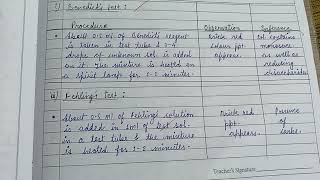 i) Benedict's test :
Procedure Observation Inference
• About 0.5 ml of Benedict's reagent Brick red Sol. contains
is taken in test tube & 3-4 colour ppt. monosacc.
drops of unknown sol. is added appears. as well as
on it. The mixture is heated on reducing
a spirit lamp for 1-2 minutes. disaccharides
ii) Fehling's Test :
• About 0.5 ml of Fehling's solution Brick red Presence
is added in 5ml of test sol. ppt. of
in a test tube & the mixture appears. carbs.
is heated for 1-2 minutes.
Teacher's Signature